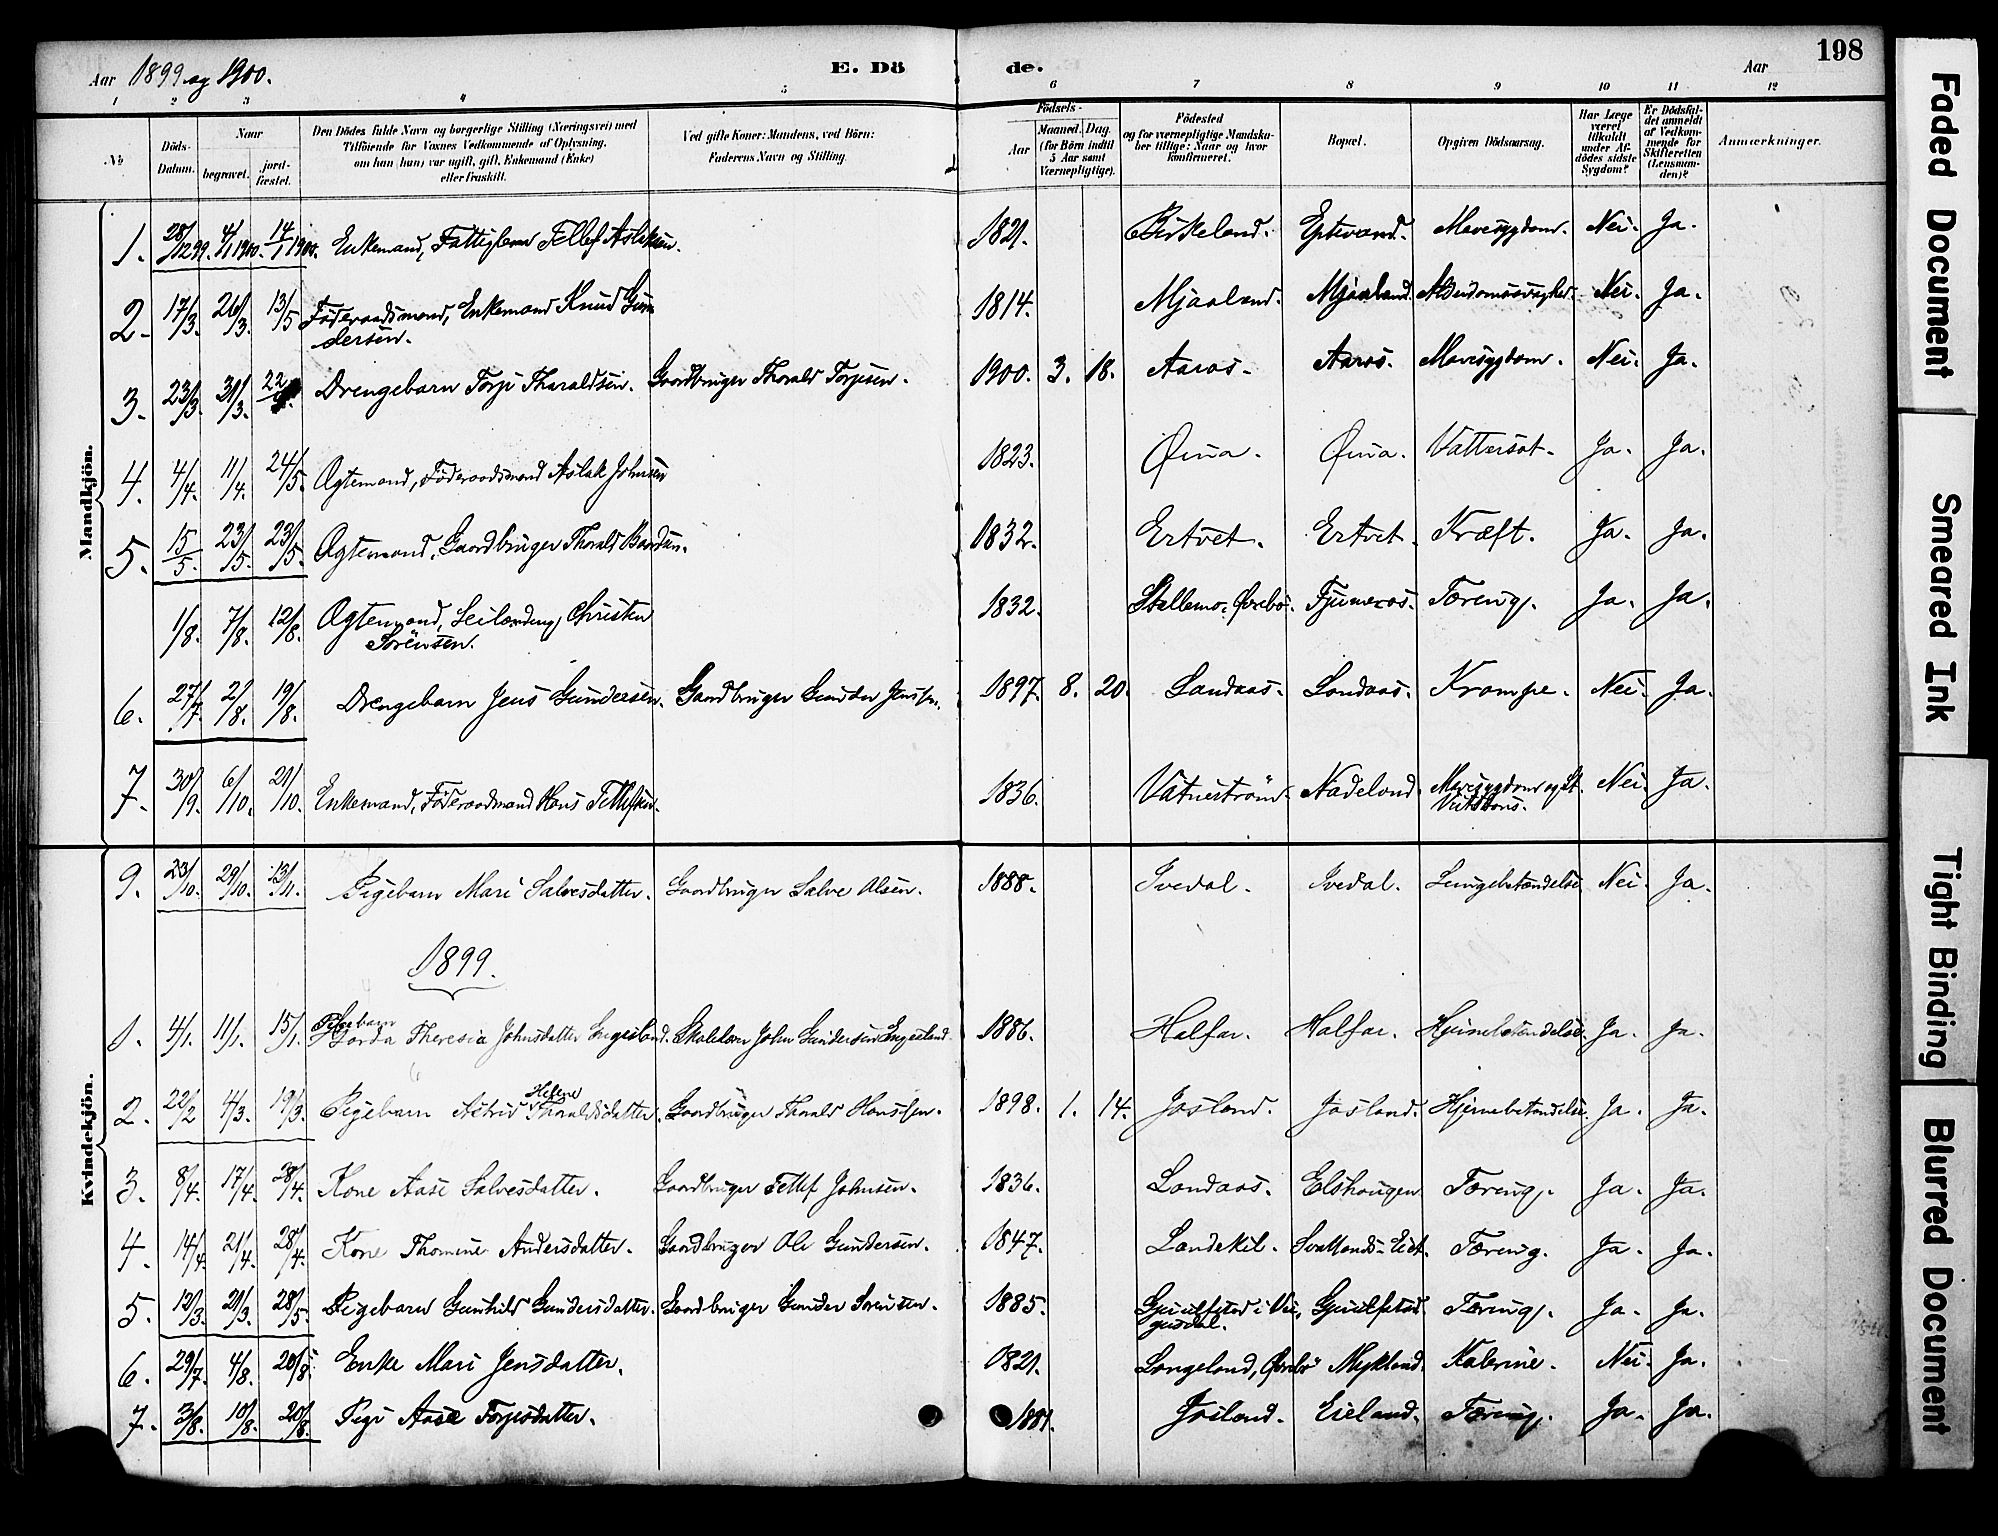 Aar 1899 og 1900. E. Dö de. Aar 198
1 2 3 4 5 6 7 8 9 10 11 12
№ Döds-Datum. Naar begravet. jord-fæstet. Den Dödes fulde Navn og borgerlige Stilling (Næringsvei) med Tilföiende for Voxnes Vedkommende af Oplysning, om han (hun) var ugift, gift, Enkemand (Enke) eller fraskilt. Ved gifte Koner: Mandens, ved Börn: Faderens Navn og Stilling. Födsels- Aar Maaned. Dag. (for Börn indtil 5 Aar samt Værnepligtige). Födested og for værnepligtige Mandskaber tillige: Naar og hvor konfirmeret. Bopæl. Opgiven Dödsaarsag. Har Læge været tilkaldt under Afdödes sidste Sygdom? Er Dödsfaldet anmeldt af Vedkommende for Skifteretten (Lensmanden)? Anmærkninger.
Mandkjön.
1. 28/12 99. 4/1 1900. 14/1 1900. Enkemand, Fattiglem Tellef Aslaksen. 1821. Birkeland. Eptevand. Mavesygdom. Nei. Ja.
2. 17/3. 26/3. 13/5 Föderaadsmand, Enkemand Knud Gun 1814. Mjaaland. Mjaaland. Alderdomssvaghed. Nei. Ja.
dersen.
3. 23/3. 31/3. 22/ Drengebarn Torje Tharaldsen. Gaardbruger Thorald Torjesen. 1900. 3. 18. Aaros. Aaros. Mavesygdom. Nei. Ja.
4. 4/4. 11/4. 24/5. Ægtemand, Föderaadsmand Aslak Johnsen 1823. Øina. Øina. Vattersot. Ja. Ja.
5. 15/5. 23/5. 23/5. Ægtemand, Gaardbruger Thorald Baardsen. 1832. Ertvet. Ertvet. Kræft. Ja. Ja.
1/8. 7/8. 12/8. Ægtemand, Leilænding Christen 1832. Stallemo, Øvrebö. Tjomeraas. Tæring. Ja. Ja.
Sörensen.
6. 27/7. 2/8. 19/8. Drengebarn Jens Gundersen. Gaardbruger Gunder Jenssen. 1897. 8. 20. Landaas. Landaas. Krampe. Nei. Ja.
7. 30/9. 6/10. 21/10. Enkemand, Föderaadmand Hans Tellefsen. 1836. Vatneström. Nadeland. Mavesygdom og St. Nei. Ja.
Veitsdans.
9. 23/10. 29/10. 13/11. Pigebarn Mari Salvesdatter. Gaardbruger Salve Olsen. 1888. Ivedal. Ivedal. Lungebetændelse Nei. Ja.
1899.
Kvindekjön.
1. 4/1. 11/1. 15/1. Pigebarn Theresia Johnsdatter Engesland. Skolelærer John Gundersen Engesland. 1886. Halfar. Halfar. Hjernebetændelse. Ja. Ja.
2. 22/2 4/3. 19/3. Pigebarn Astrid Helene Tharaldsdatter. Gaardbruger Thorald Hanssen. 1898. 1. 14. Josland. Josland. Hjernebetændelse. Ja. Ja.
3. 8/4. 17/4. 28/4. Kone Aase Salvesdatter. Gaardbruger Tellef Johnsen. 1836. Landaas. Elshougen Tæring. Ja. Ja.
4. 14/4. 21/4. 28/4. Kone Thomine Andersdatter. Gaardbruger Ole Gundersen. 1847. Landekil. Svaltands-Eiet. Tæring. Ja. Ja.
5. 12/3. 21/3. 28/5. Pigebarn Gunhild Gundersdatter. Gaardbruger Gunder Sorensen. 1885. Gjiulfstad i Vei. Gjiulfstad. Tæring. Ja. Ja.
gusdal.
6. 29/7. 4/8. 20/8. Enke Mari Jensdatter. 1821. Langeland, Øvrebö Mykland. Kalerine. Nei. Ja.
7. 3/8. 10/8. 20/8. Pige Aase Torjesdatter. 1881. Josland. Eieland. Tæring. Ja. Ja.
Faded Document
Smeared Ink
Tight Binding
Blurred Document